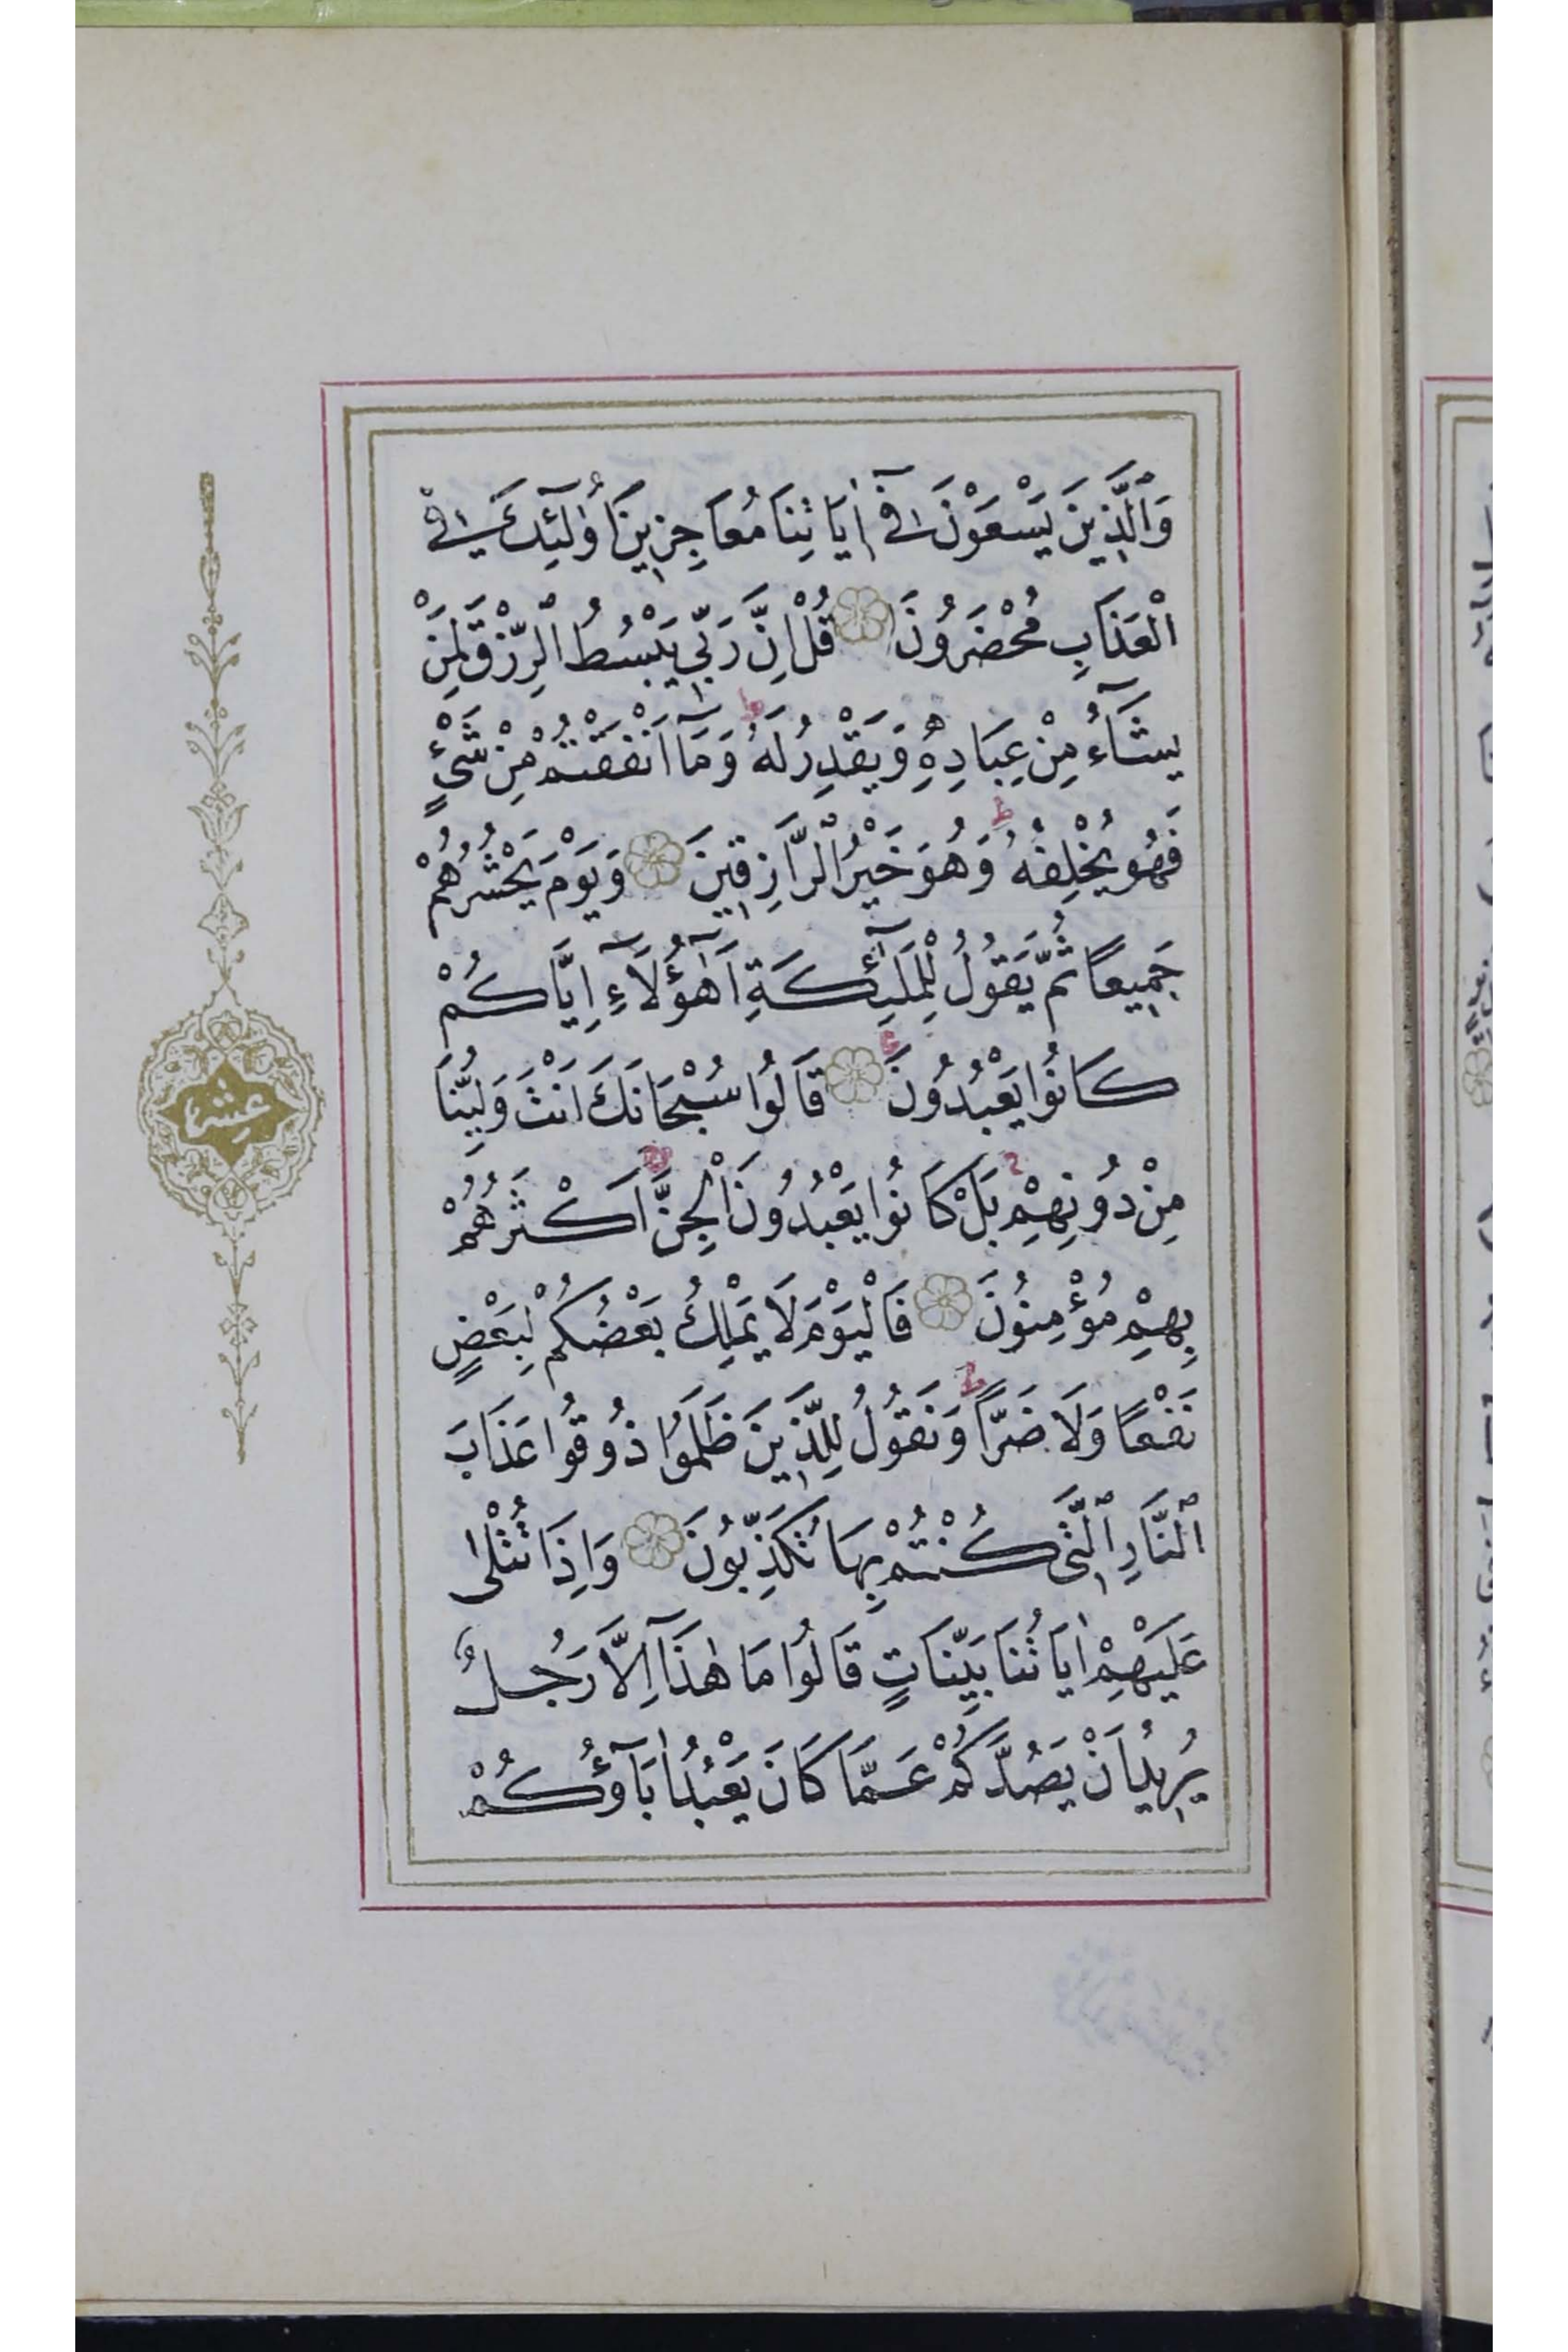 وَالَّذِينَ يَسْعَوْنَ فِىٓ اٰيَاتِنَا مُعَاجِزِينَ اُولٰٓئِكَ فِى
الْعَذَابِ مُحْضَرُونَ قُلْ اِنَّ رَبِّى يَبْسُطُ الرِّزْقَ لِمَنْ
يَشَٓاءُ مِنْ عِبَادِهِ وَيَقْدِرُ لَهُ ط وَمَٓا اَنْفَقْتُمْ مِنْ شَىْءٍ
فَهُوَ يُخْلِفُهُ ط وَهُوَ خَيْرُ الرَّازِقِينَ وَيَوْمَ يَحْشُرُهُمْ
جَمِيعًا ثُمَّ يَقُولُ لِلْمَلٰٓئِكَةِ اَهٰٓؤُلَٓاءِ اِيَّاكُمْ
كَانُوا يَعْبُدُونَ قَالُوا سُبْحَانَكَ اَنْتَ وَلِيُّنَا
مِنْ دُونِهِمْ بَلْ كَانُوا يَعْبُدُونَ الْجِنَّ اَكْثَرُهُمْ
بِهِمْ مُؤْمِنُونَ فَالْيَوْمَ لَا يَمْلِكُ بَعْضُكُمْ لِبَعْضٍ
نَفْعًا وَلَا ضَرًّا ط وَنَقُولُ لِلَّذِينَ ظَلَمُوا ذُوقُوا عَذَابَ
النَّارِ الَّتِى كُنْتُمْ بِهَا تُكَذِّبُونَ وَاِذَا تُتْلٰى
عَلَيْهِمْ اٰيَاتُنَا بَيِّنَاتٍ قَالُوا مَا هٰذَٓا اِلَّا رَجُلٌ
يُرِيدُ اَنْ يَصُدَّكُمْ عَمَّا كَانَ يَعْبُدُ اٰبَٓاؤُكُمْ
عشر